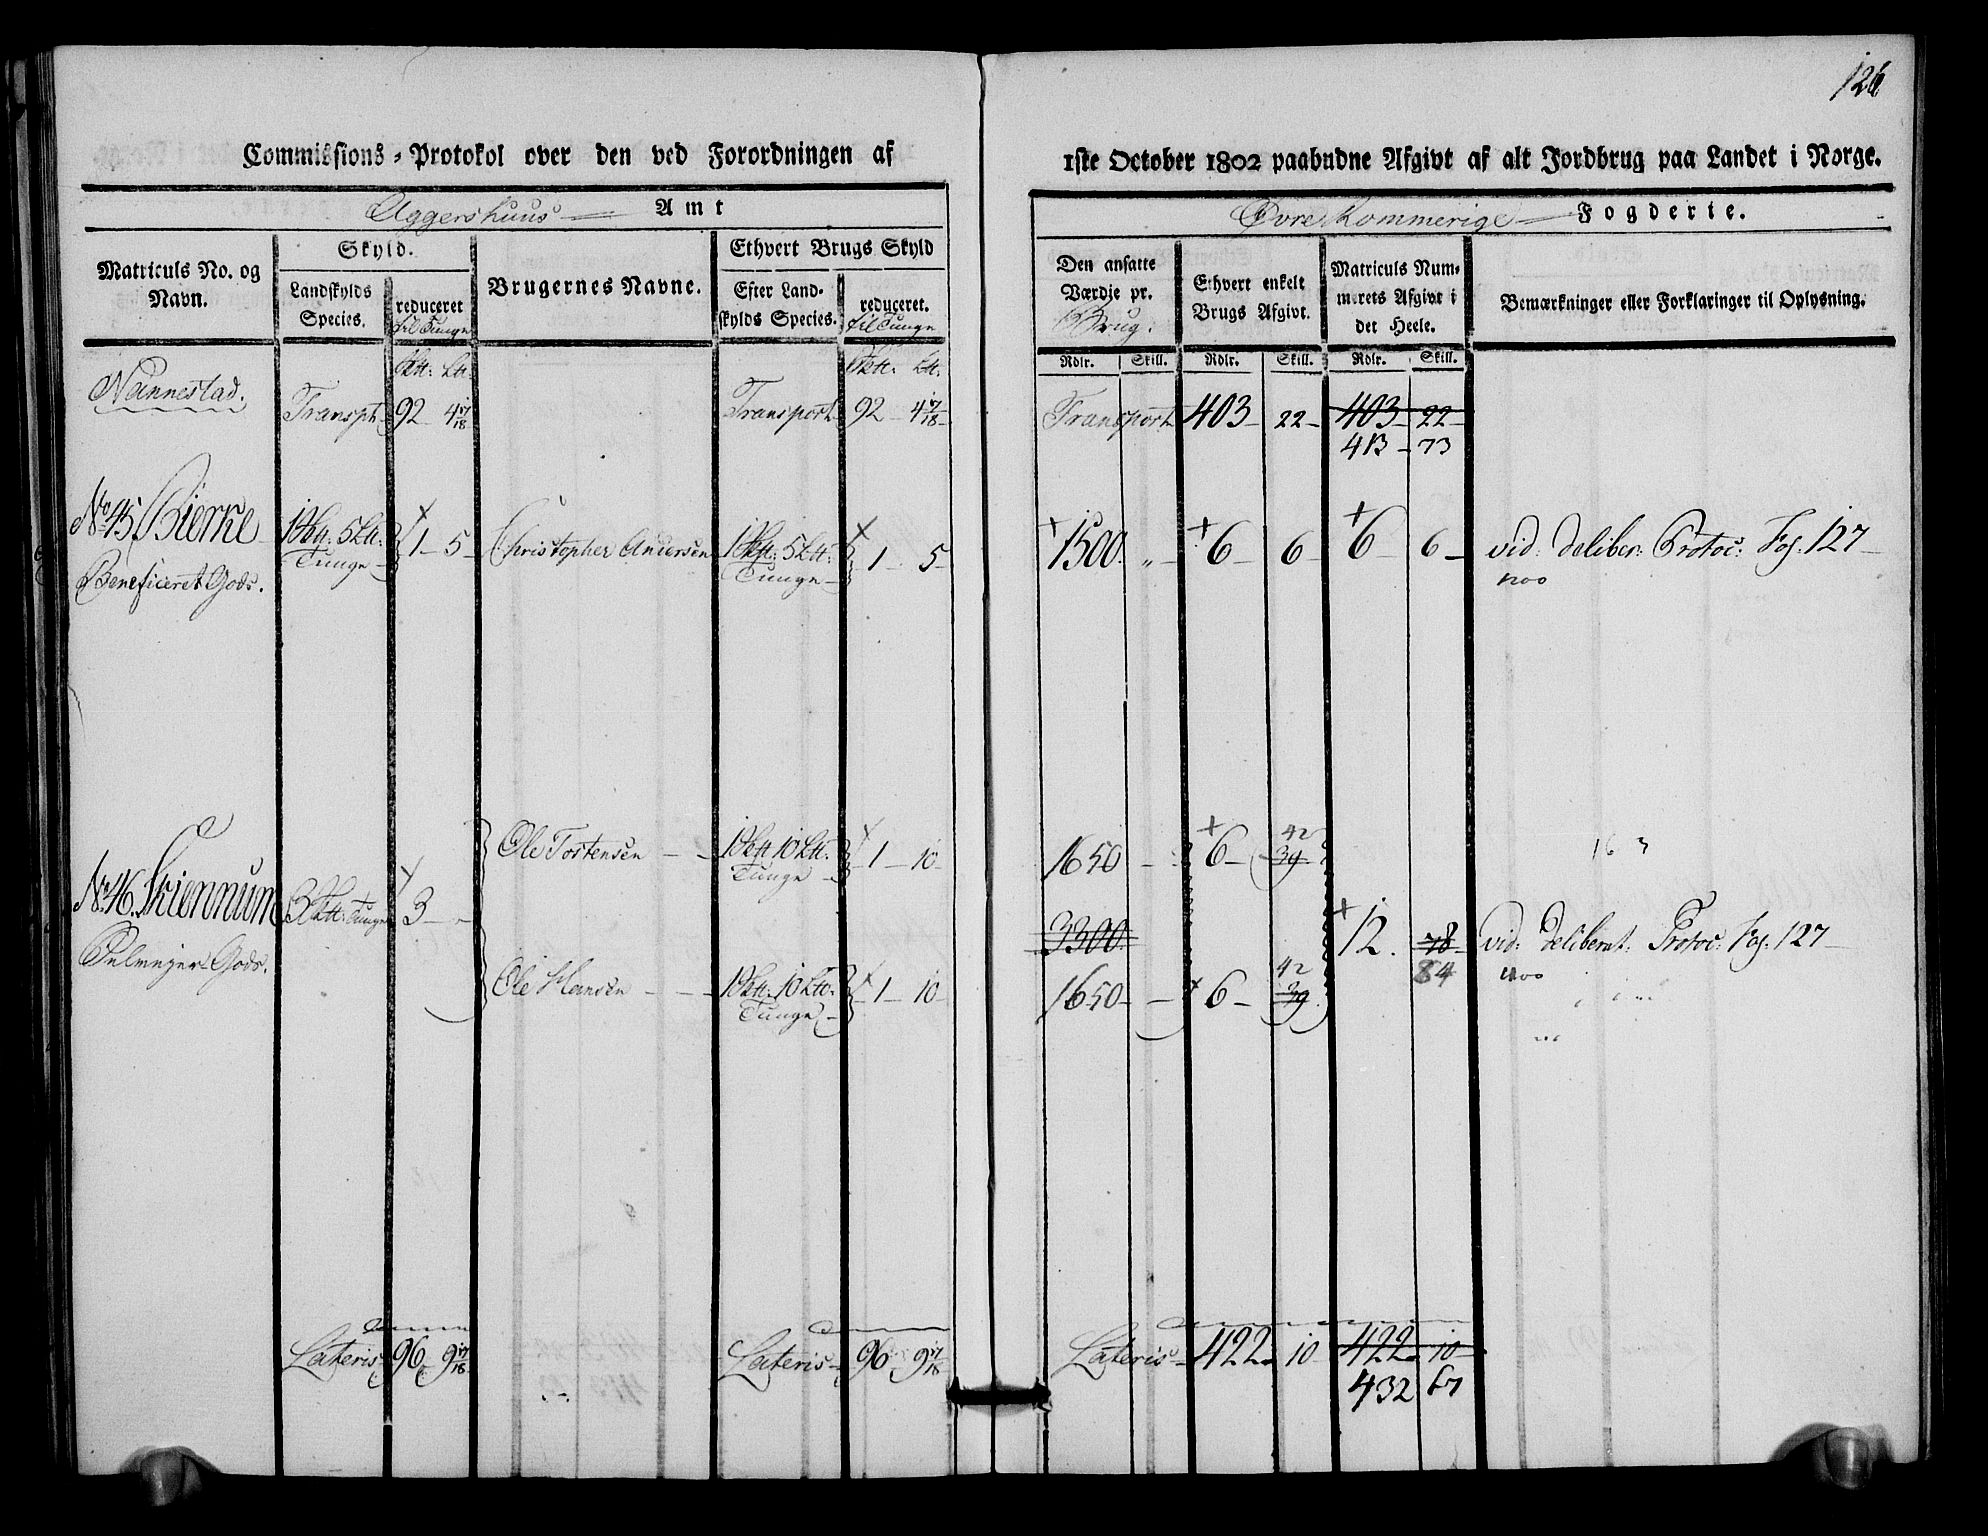 126
Commissions-Protokol over den ved Forordningen af 1ste October 1802 paabudne Afgivt af alt Jordbrug paa Landet i Norge.
Aggershuus Amt
Øvre Rommerige Fogderie.
Matriculs No. og Navn.
Skyld.
Landskylds Species.
reduceret til Tunge
Brugernes Navne.
Ethvert Brugs Skyld
Efter Landskylds Species.
reduceret. til Tunge
Den ansatte Værdje pr. Brug.
Ethvert enkelt Brugs Afgivt.
Matriculs Nummerets Afgivt i det Heele.
Bemærkninger eller Forklaringer til Oplysning.
Rdlr. Skill. Rdlr. Skill. Rdlr. Skill.
Nannestad.
Transpt. 92 4 17/18 Transport 92 4 17/18 Transport 403 22 403 22
413 73
No 45 Bierke 1 Sktt: 5 Ltt: Tunge 1 5 Christopher Andersen 1 Sktt: 5 Ltt: Tunge 1 5 1500 " 6 6 6 6 vid: deliber: Protoc: Fog. 127
Beneficeret Gods.
Ole Tostensen 1 Sktt 10 Ltt: Tunge 1 10 1650 6 42 39
No 46. Skiennum 3 Sktt: Tunge 3 3300 12. 78 84 vid: deliberat: Protoc: Fog. 127
Gods.
Ole Hansen 1 Sktt: 10 Ltt: Tunge 1 10 1650 6 42 39
Lateris 96 9 17/18 Lateris 96 9 17/18 Lateris 422 10 422 10
432 67